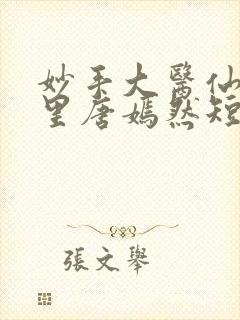 妙手大醫仙
里唐嫣然短
張文舉